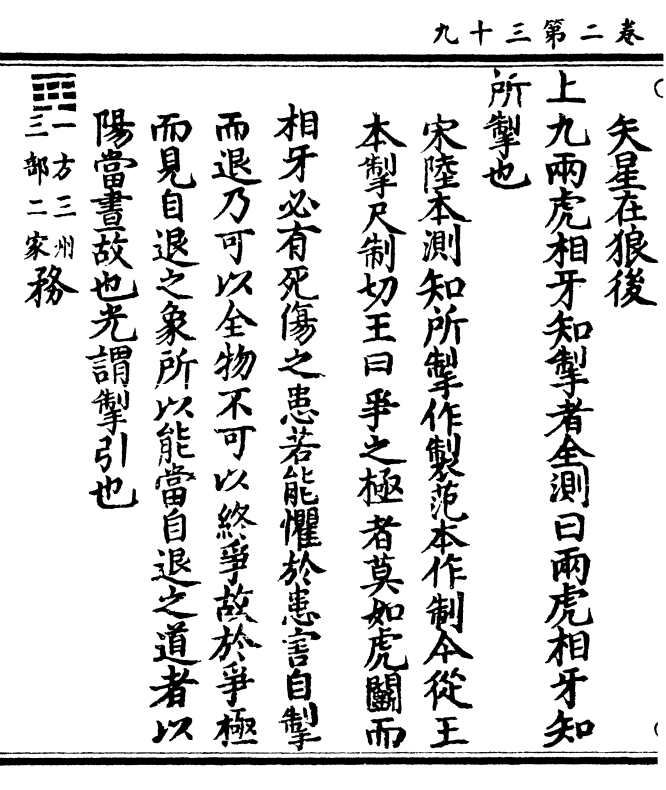 卷二第三十九
矢星在狼後
上九兩虎相牙知掣者全測曰兩虎相牙知
所掣也
宋陸本測知所掣作製范本作制今從王
本掣尺制切王曰爭之極者莫如虎鬭而
相牙必有死傷之患若能懼於患害自掣
而退乃可以全物不可以終爭故於爭極
而見自退之象所以能當自退之道者以
陽當晝故也光謂掣引也
一方三州
三部二家
務